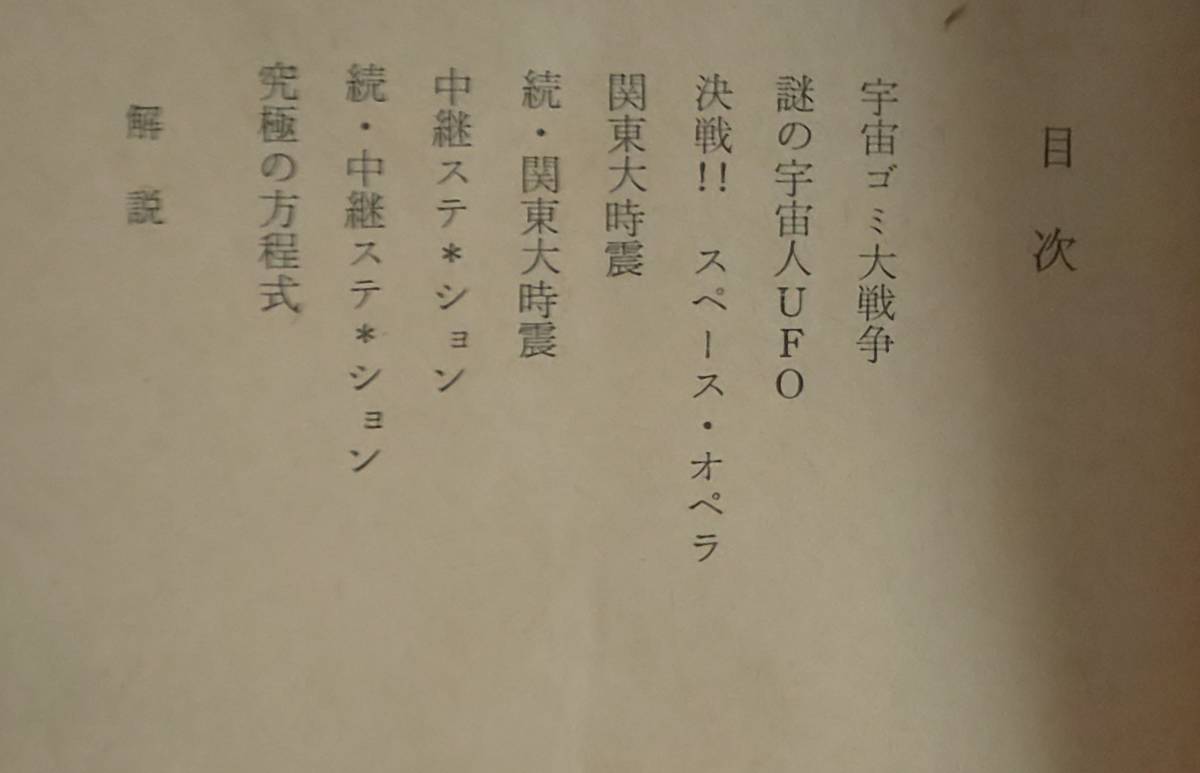 目次
宇宙ゴミ大戦争
謎の宇宙人UFO
決戦!! スペース・オペラ
関東大時震
続・関東大時震
中継ステ*ション
続・中継ステ*ション
究極の方程式
解説